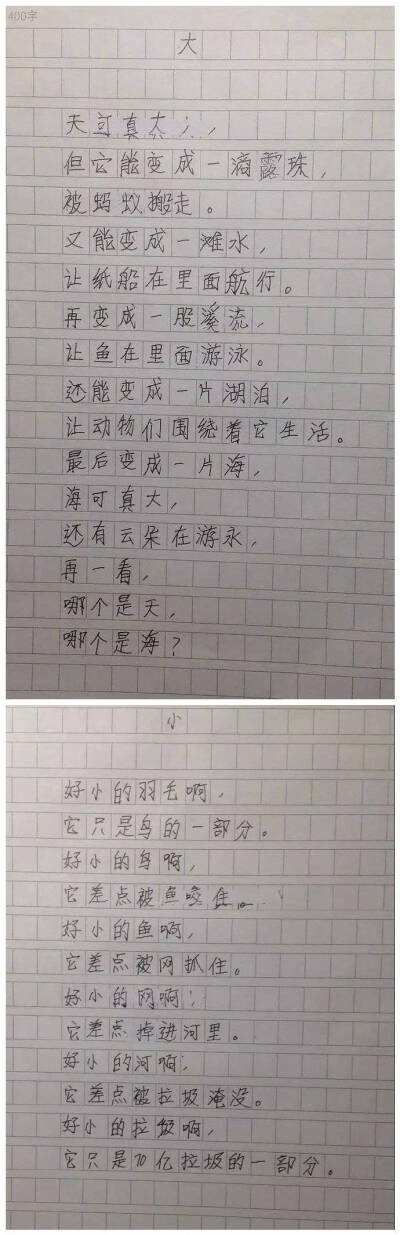 400字
大
天可真大，
但它能变成一滴露珠，
被蚂蚁搬走。
又能变成一滩水，
让纸船在里面航行。
再变成一股溪流，
让鱼在里面游泳。
还能变成一片湖泊，
让动物们围绕着它生活。
最后变成一片海，
海可真大，
还有云朵在游永，
再一看，
哪个是天，
哪个是海？
小
好小的羽毛啊，
它只是鸟的一部分。
好小的鸟啊，
它差点被鱼咬住。
好小的鱼啊，
它差点被网抓住。
好小的网啊；
它差点掉进河里。
好小的河啊；
它差点被垃圾淹没。
好小的垃圾啊，
它只是70亿垃圾的一部分。